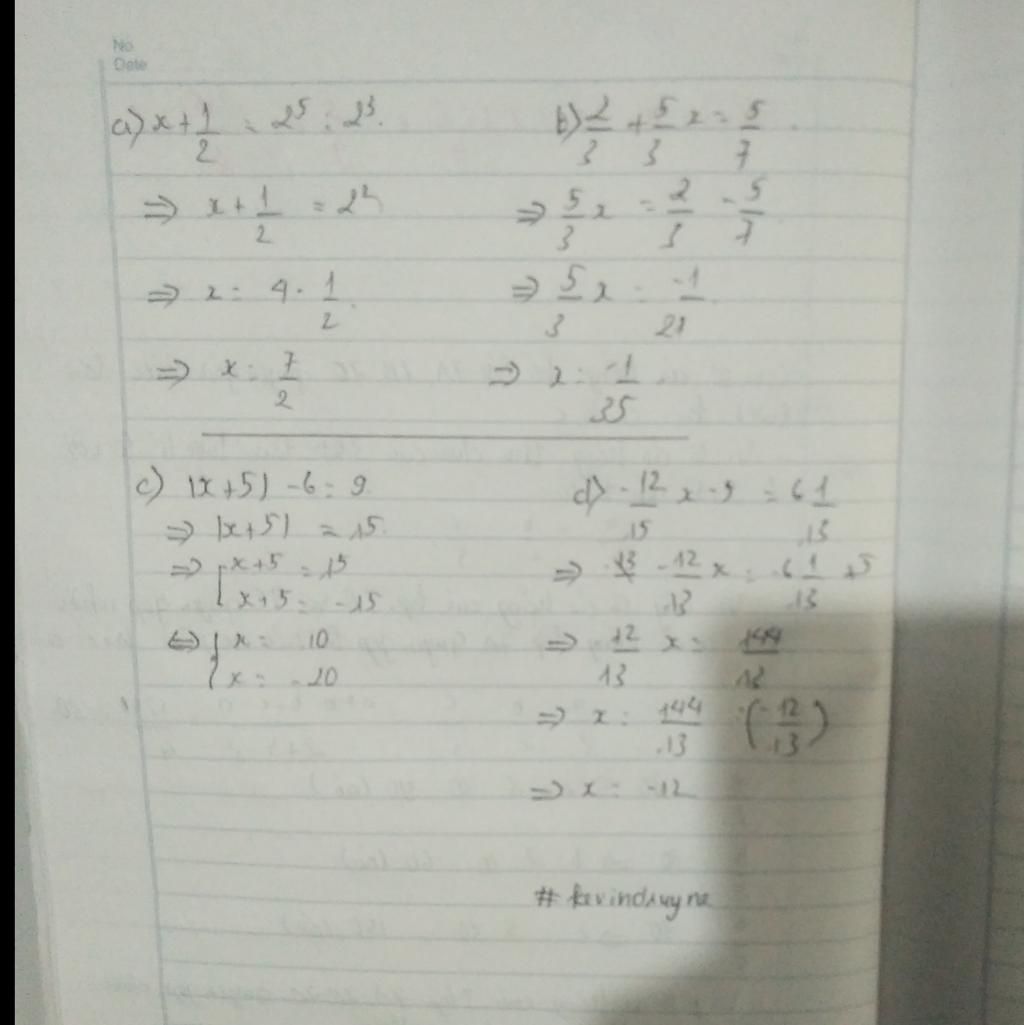 No.
Date
a) x + 1/2 = 2^5 : 2^3.
⇒ x + 1/2 = 2^2
⇒ x = 4 - 1/2.
⇒ x = 7/2
b) 2/3 + 5/3 x = 5/7
⇒ 5/3 x = 2/3 - 5/7
⇒ 5/3 x = -1/21
⇒ x = -1/35
c) |x+5| - 6 = 9
⇒ |x+5| = 15.
⇒ [x+5 = 15
x+5 = -15
⇔ [x = 10
x = -20
d) -12/13 x - 5 = 6 1/13
⇒ -12/13 x = 6 1/13 + 5
⇒ 12/13 x = 144/13
⇒ x = 144/13 : (-12/13)
⇒ x = -12